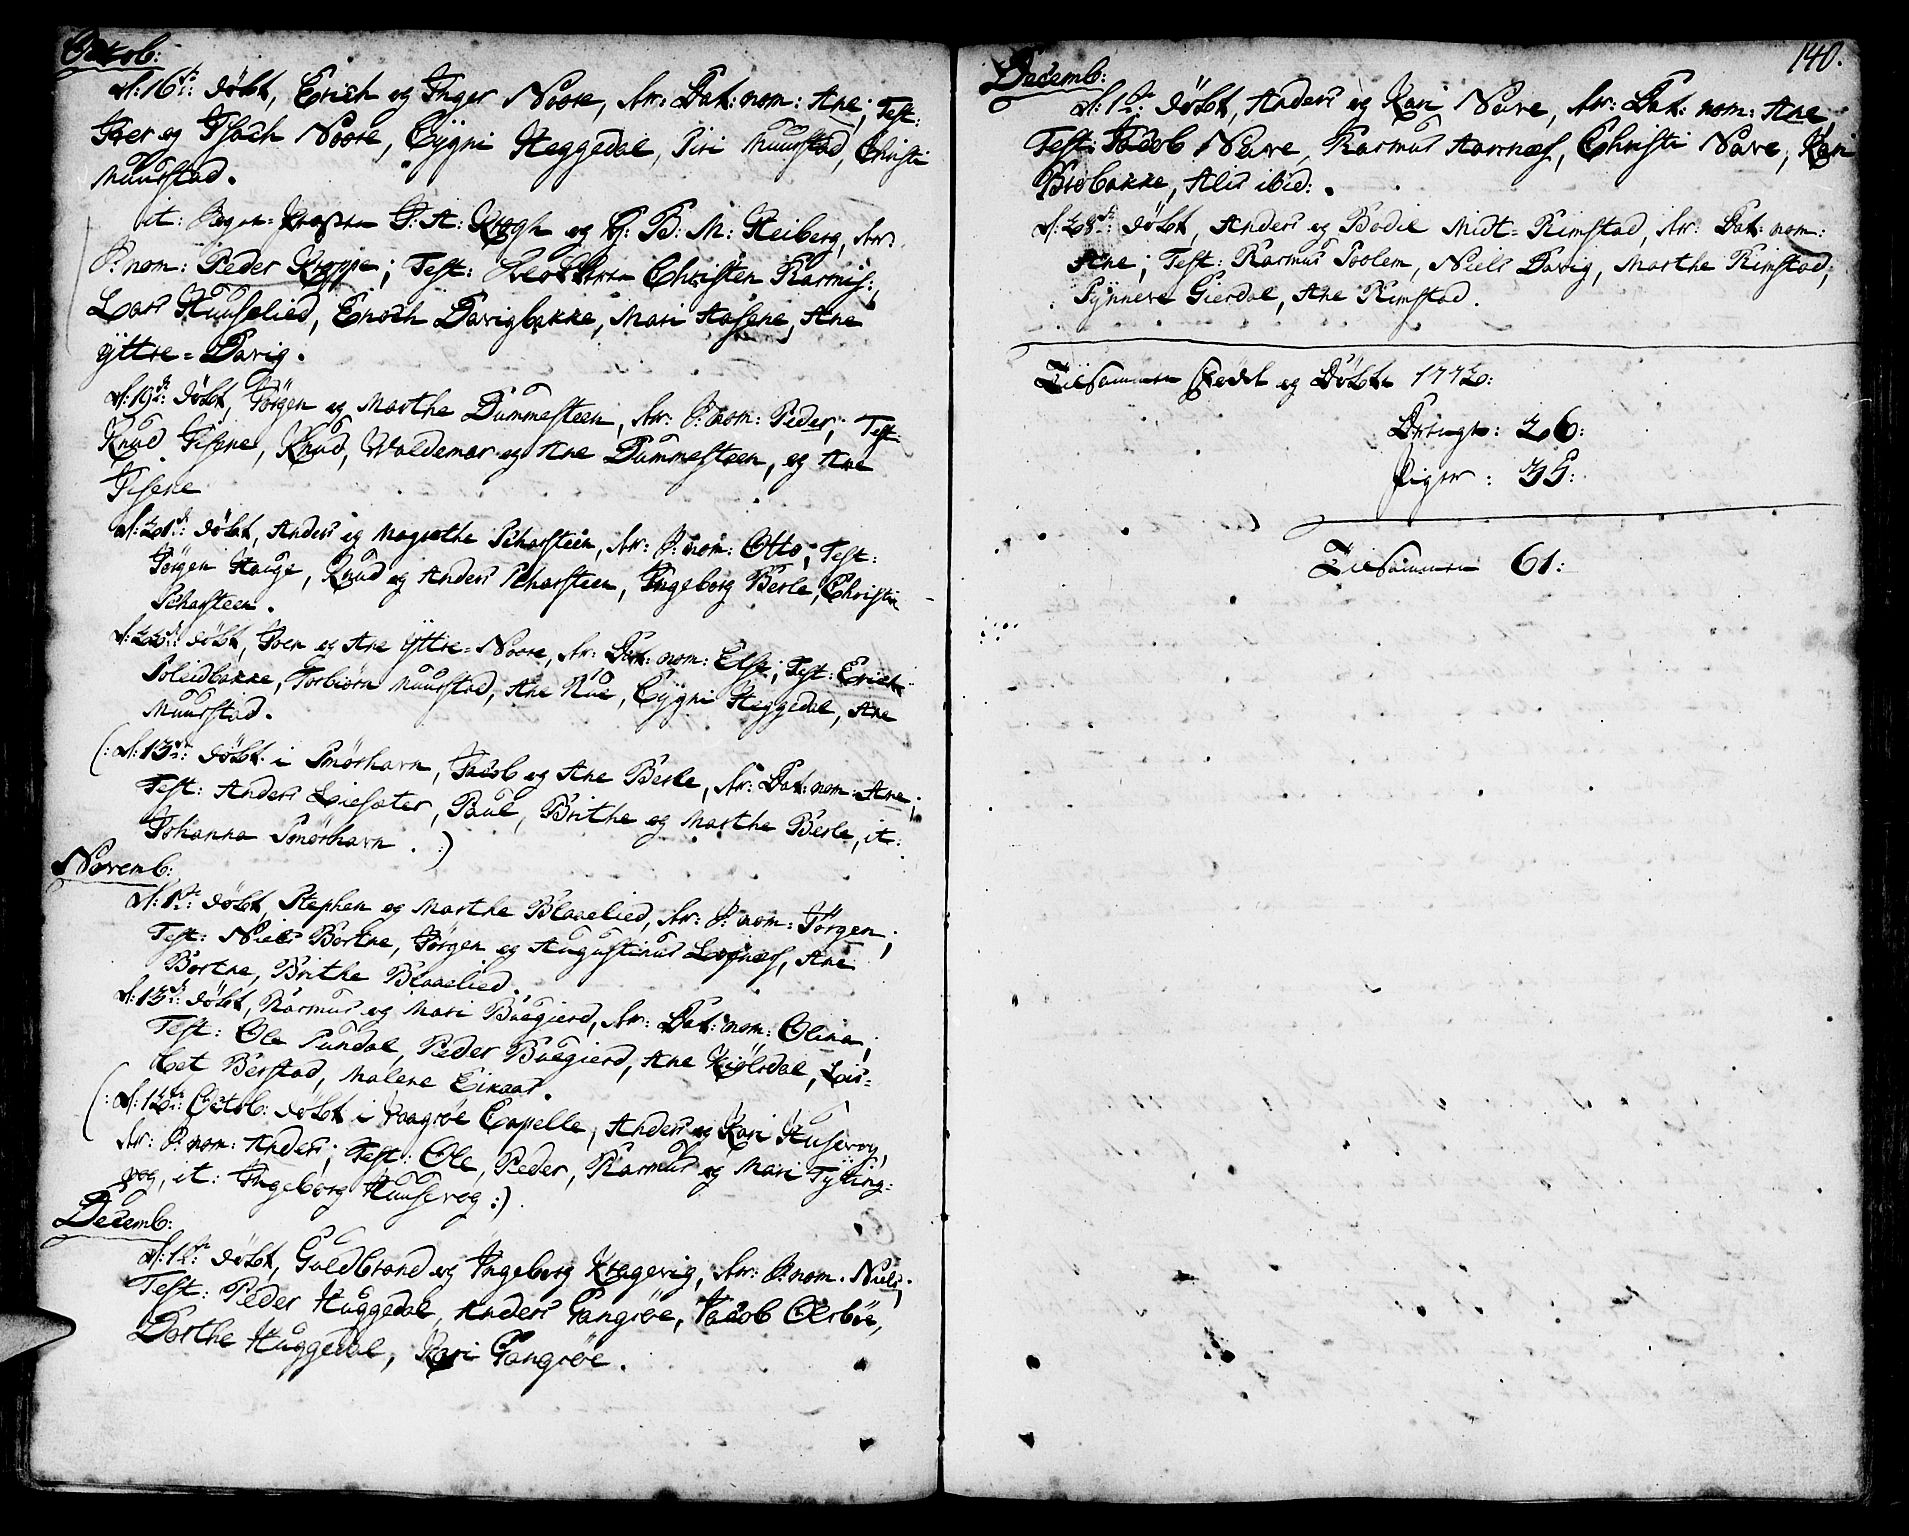 Octob:
d: 16de: døbt, Erich og Inger Noore, der: Dat: nom: Ane; Test:
Iver og Isach Noore, Cygni Heggedal, Siri Muurstad, Christi
Muurstad.
it: J: A: Krogh og F: B: M: Heiberg, der:
S: nom: Peder Kroppe; Test: Christen Rasmis:,
Lars Huuselied, Enoch Davigbakke, Mari Aasene, Ane
ÿttre=Davig.
d: 19de: døbt, Jørgen og Marthe Dummesteen, der: S: nom: Peder; Test:
Knud Gisene, Knud, Waldemar og Ane Dummesteen, og Ane
Gisene
d: 21de: døbt, Anders og Magrethe Scharsteen, der: S: nom: Otto; Test:
Jørgen Hauge, Knud og Anders Scharsteen, Ingeborg Berle, Christi
Scharsteen.
d: 22de: døbt, Joen og Ane ÿttre=Noore, der: Dat: nom: Else; Test: Erich
Soleidbakke, Torbiørn Muurstad, Ane Nue, Cygni Heggedal, Ane
Muurstad.
(: d: 13de: døbt i Smørhavn, Jacob og Ane Berle, der: Dat: nom: Ane;
Test: Anders Liesæter, Paul, Brithe og Marthe Berle, it:
Johanna Smørhavn. :)
Novemb:
d: 1te: døbt, Stephen og Marthe Blaaelied, der: S: nom: Jørgen;
Test: Niels Bortne, Jørgen og Augustinus Lofnæs, Ane
Bortne, Brithe Blaaelied.
d: 15de: døbt, Rasmus og Mari Buegierd, der: Dat: nom: Olina;
Test: Ole Sundal, Peder Buegierd, Ane Kiølsdal, Lis=
bet Berstad, Malene Eikaas.
(: d: 12te: Octob: døbt i Vaagsøe Capelle, Anders og Kari Husevog,
der: S: nom: Anders; Test: Ole, Peder, Rasmus og Mari Tyting=
vog, it: Ingeborg Huusevog :)
Decemb:
d: 1te: døbt, Guldbrand og Ingeborg Kragevig, der: S: nom: Niels;
Test: Peder Huggedal, Anders Gangsøe, Jacob Oesbøe,
Dorthe Huggedal, Kari Gangsøe.
140.
Decemb:
d: 1te: døbt, Anders og Kari Nave, der: Dat: nom: Ane,
Test: Jacob Nave, Rasmus Aarnæs, Christi Nave, Kari
Brobakke, Alis ibid:.
d: 28de: døbt, Anders og Bodil Midt=Rimstad, der: Dat: nom:
Ane; Test: Rasmus Soolem, Niels Davig, Marthe Rimstad,
Synneve Gierdal, Ane Rimstad.
Tilsammen Fødde og Døbte 1772:
Drenge: 26:
Piger: 35:
Tilsammen 61: